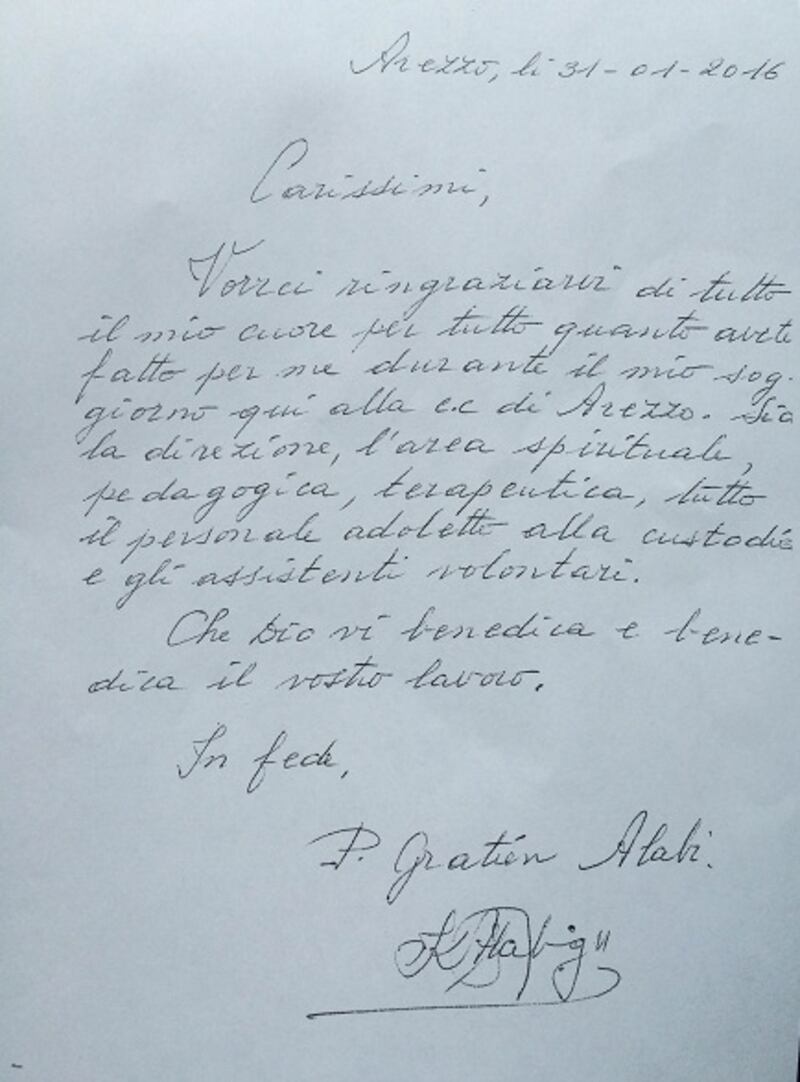 Arezzo, li 31-01-2016
Carissimi,
Vorrei ringraziarvi di tutto
il mio cuore per tutto quanto avete
fatto per me durante il mio sog-
giorno qui alla c.c di Arezzo. Sia
la direzione, l'area spirituale,
pedagogica, terapeutica, tutto
il personale adoletto alla custodia
e gli assistenti volontari.
Che Dio vi benedica e bene-
dica il vostro lavoro.
In fede,
P. Gratién Alabi.